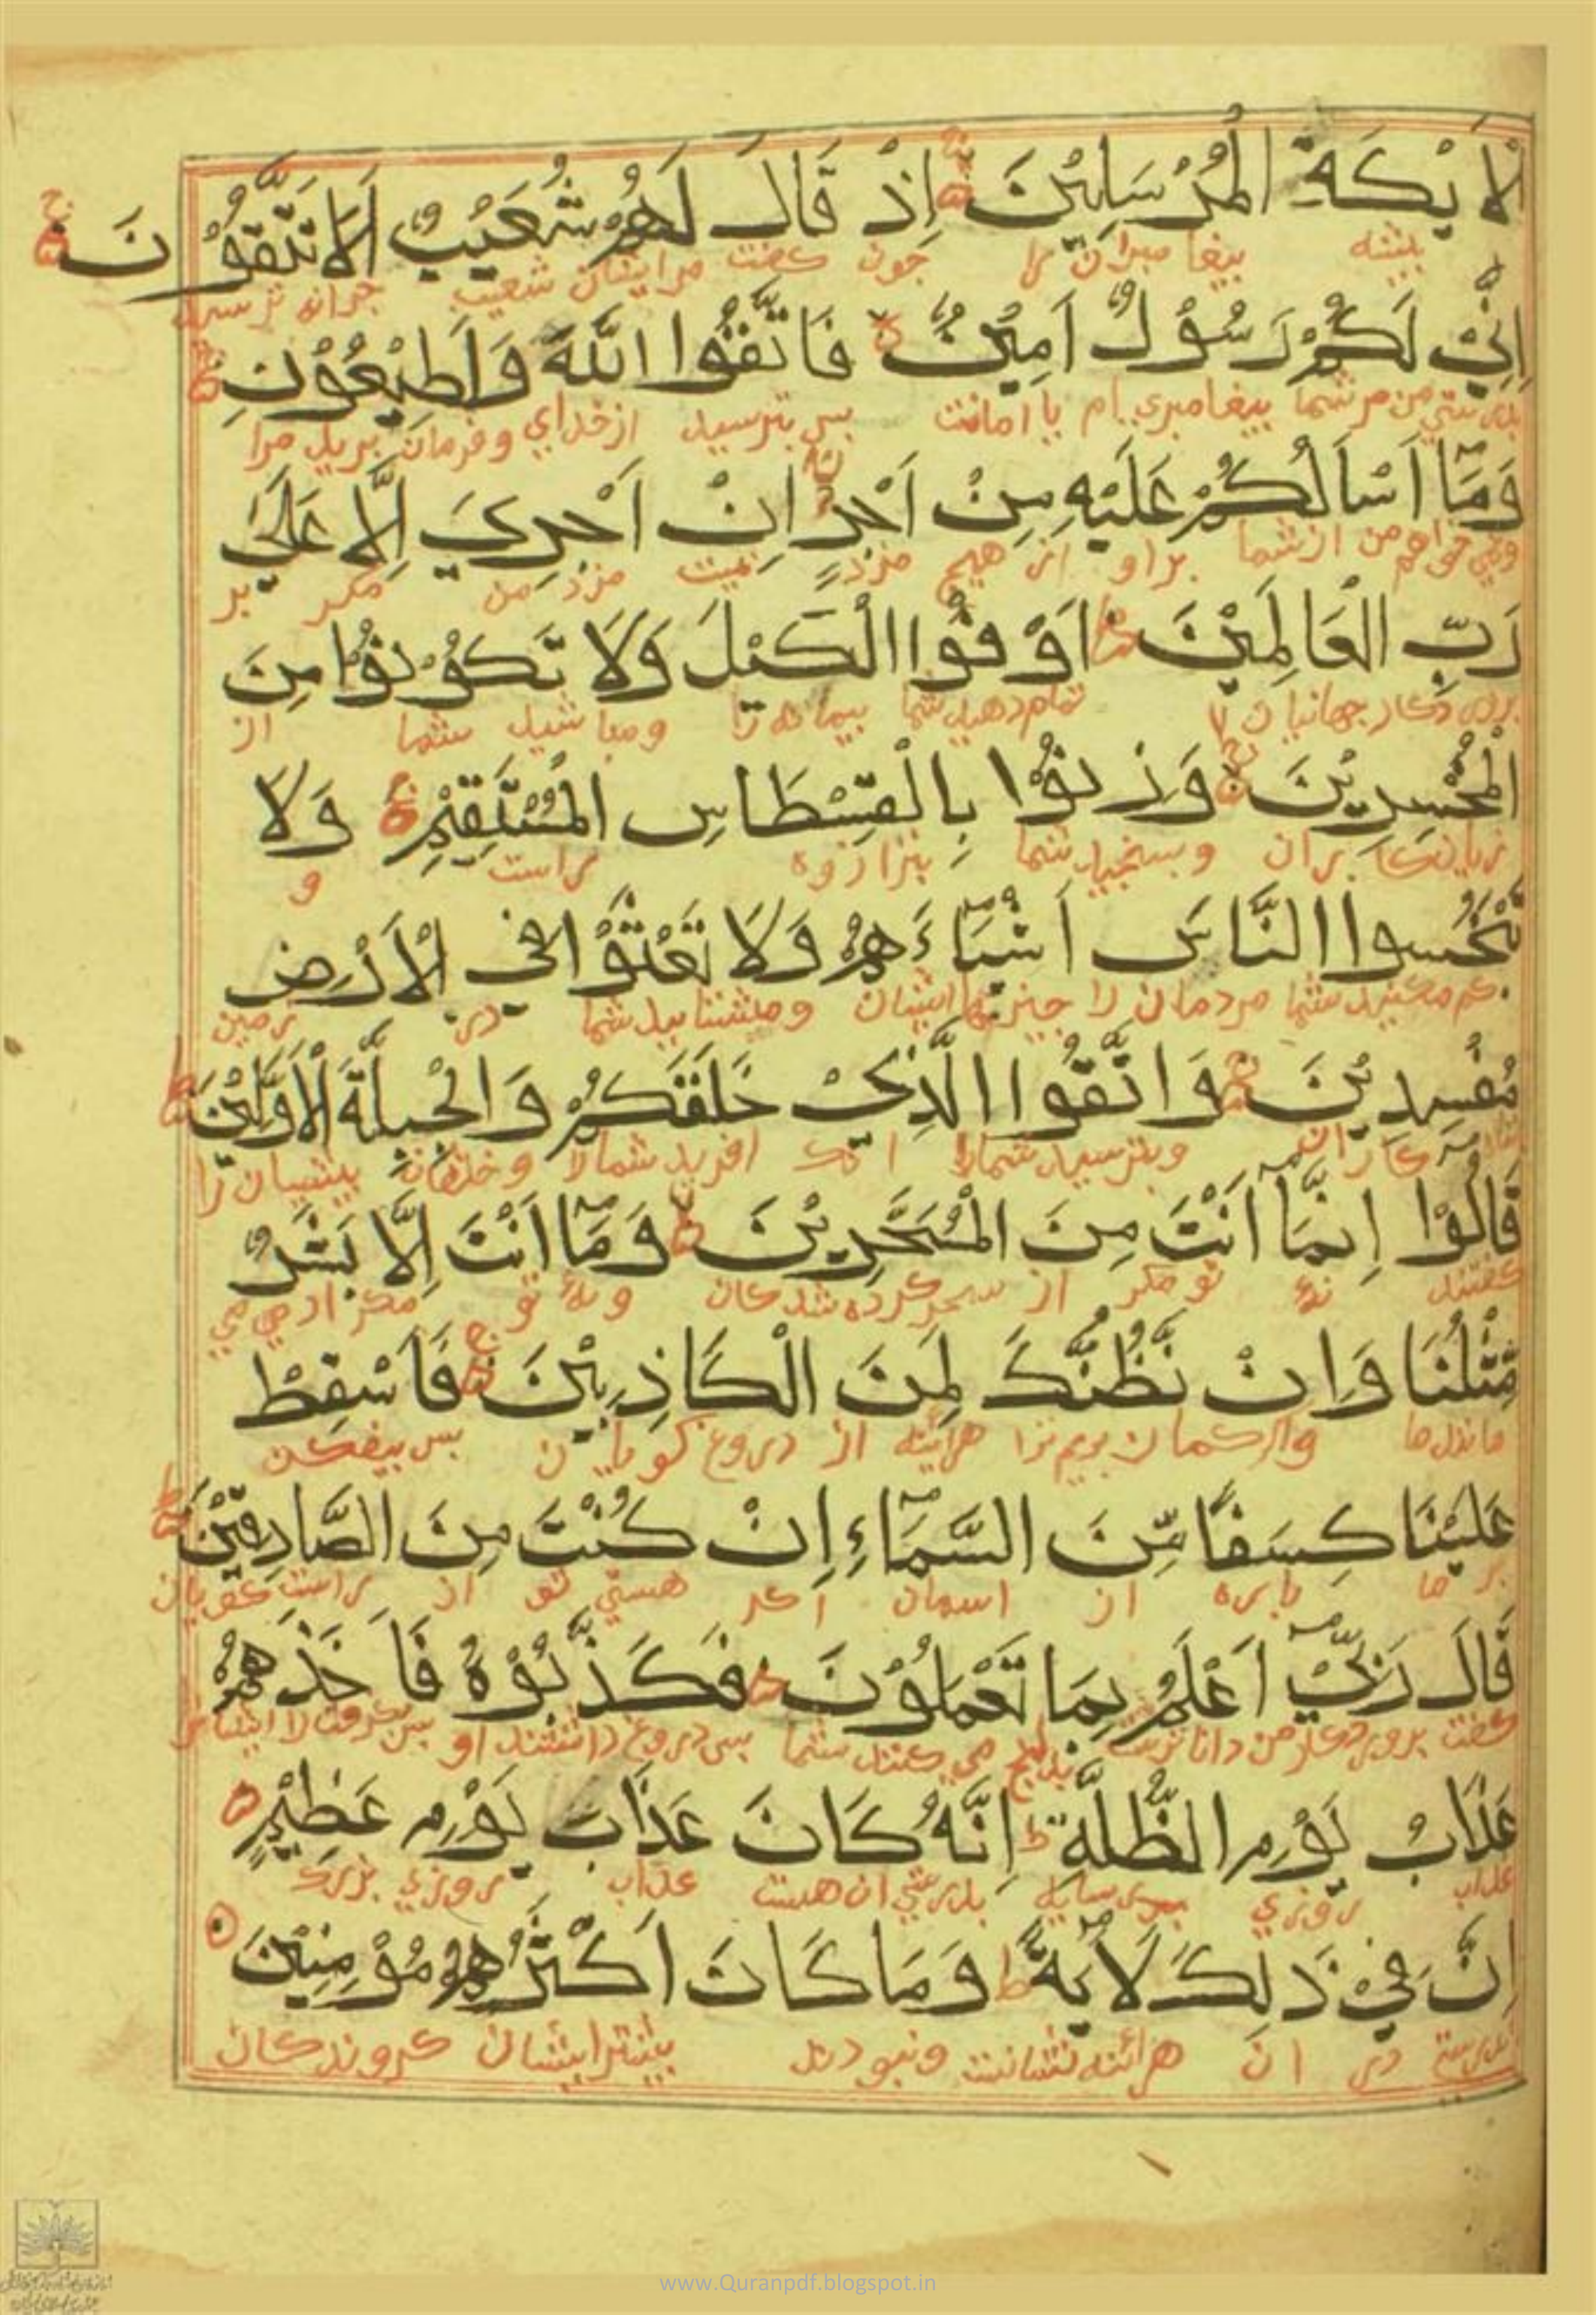 لْاَيْكَةِ الْمُرْسَلِيْنَ اِذْ قَالَ لَهُمْ شُعَيْبٌ اَلَا تَتَّقُوْنَ
بیشه پیغامبران را چون گفت مرایشان شعیب چرانه ترسید
اِنِّيْ لَكُمْ رَسُوْلٌ اَمِيْنٌ فَاتَّقُوا اللّٰهَ وَاَطِيْعُوْنِ
بدرستی من مر شما پیغامبری ام با امانت پس بترسید از خدای و فرمان برید مرا
وَمَآ اَسْاَلُكُمْ عَلَيْهِ مِنْ اَجْرٍ اِنْ اَجْرِيَ اِلَّا عَلٰى
ونمی خواهم من از شما بر او از هیچ مزد نیست مزد من مگر بر
رَبِّ الْعَالَمِيْنَ اَوْفُوا الْكَيْلَ وَلَا تَكُوْنُوْا مِنَ
پروردگار جهانیان تمام دهید شما پیمانه را ومباشید شما از
الْمُخْسِرِيْنَ وَزِنُوْا بِالْقِسْطَاسِ الْمُسْتَقِيْمِ وَلَا
زیان کاران وبسنجید شما بترازوه راست و
تَبْخَسُوا النَّاسَ اَشْيَآءَهُمْ وَلَا تَعْثَوْا فِي الْاَرْضِ
کم مکنید شما مردمان را چیزهای ایشان ومشتابید شما در زمین
مُفْسِدِيْنَ وَاتَّقُوا الَّذِيْ خَلَقَكُمْ وَالْجِبِلَّةَ الْاَوَّلِيْنَ
کاران وبترسید شما افرید شمارا وخلقان پیشیان را
قَالُوْٓا اِنَّمَآ اَنْتَ مِنَ الْمُسَحَّرِيْنَ وَمَآ اَنْتَ اِلَّا بَشَرٌ
گفتند نهٔ تو مگر از سحر کرده شدگان ونهٔ تو مگر ادمی
مِّثْلُنَا وَاِنْ نَّظُنُّكَ لَمِنَ الْكَاذِبِيْنَ فَاَسْقِطْ
مانند ما واگر گمان بریم ترا هرائنه از دروغ گویان پس بیفکن
عَلَيْنَا كِسَفًا مِّنَ السَّمَآءِ اِنْ كُنْتَ مِنَ الصَّادِقِيْنَ
بر ما پاره از اسمان اگر هستی تو از راست گویان
قَالَ رَبِّيْٓ اَعْلَمُ بِمَا تَعْمَلُوْنَ فَكَذَّبُوْهُ فَاَخَذَهُمْ
گفت پروردگار من داناتراست می کنند شما پس دروغ داشتند او پس بگرفت
عَذَابُ يَوْمِ الظُّلَّةِ اِنَّهٗ كَانَ عَذَابَ يَوْمٍ عَظِيْمٍ
عذاب روزی سایه بدرستی ان هست عذاب روزی بزرگ
اِنَّ فِيْ ذٰلِكَ لَاٰيَةً وَمَا كَانَ اَكْثَرُهُمْ مُؤْمِنِيْنَ
بدرستی در ان هرائنه نشانیست ونبودند بیشتر ایشان گروندگان
www.Quranpdf.blogspot.in